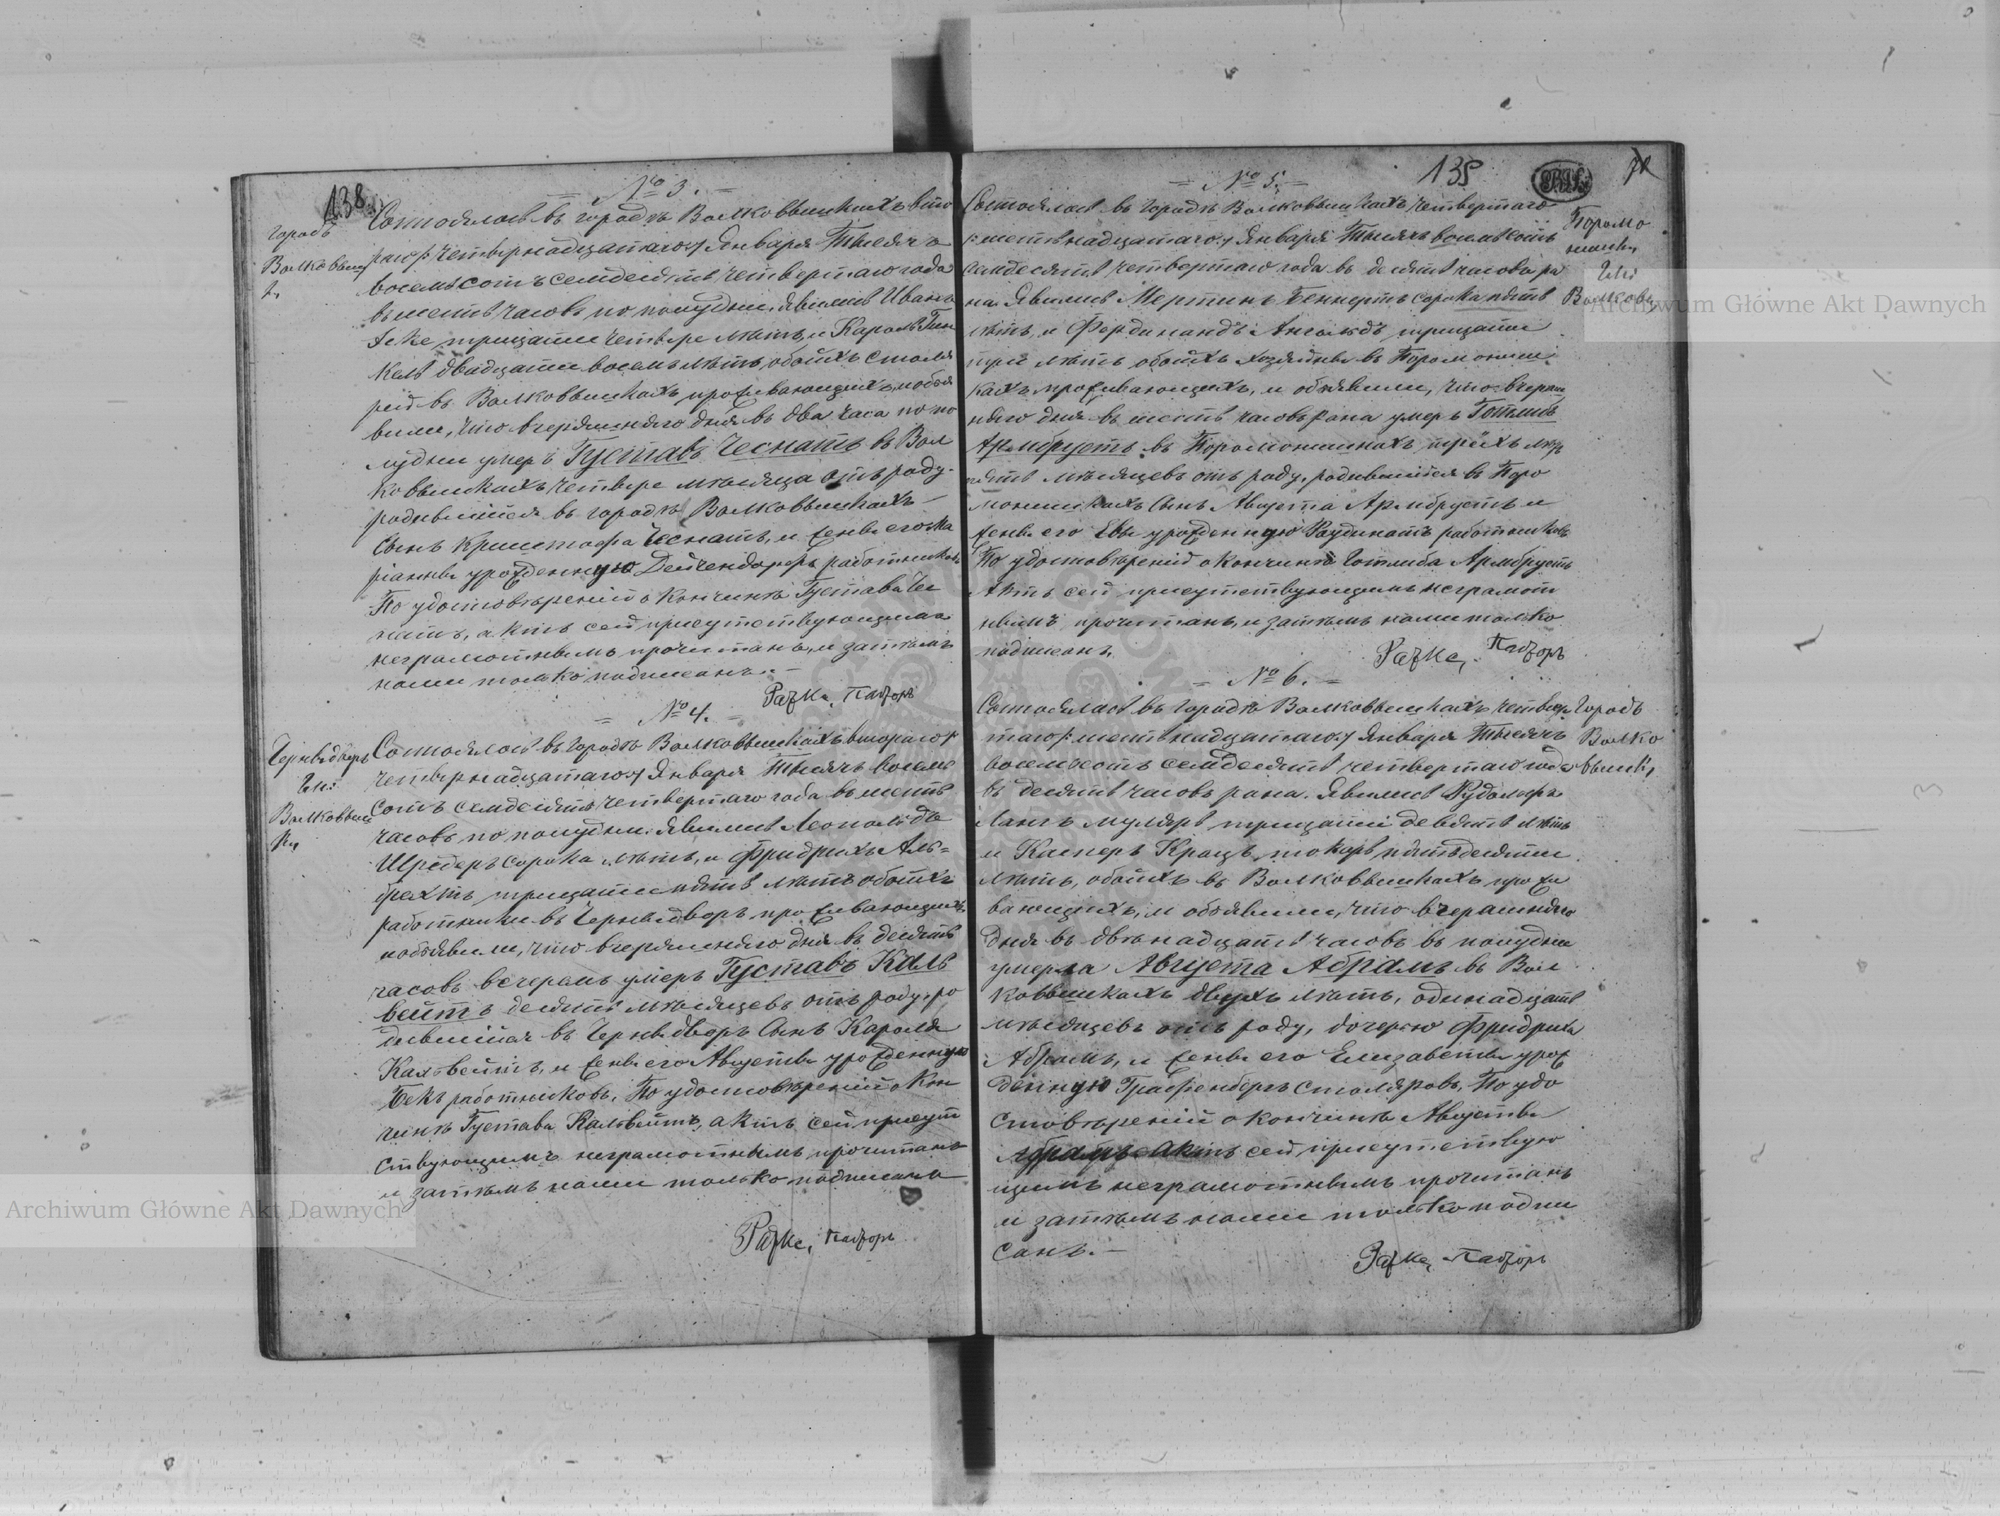 138
№ 3.
городъ
Волковыш
ки
Состоялось въ городѣ Волковышкахъ вто
раго/четырнадцатаго/ Января Тысяча
восемьсотъ семдесять четвертаго года
въ шесть часовъ по полудни. Явились Иванъ
тридцати четыре лѣтъ, и Карлъ
двадцати восемь лѣтъ, обоихъ столя
рей въ Волковышкахъ проживающихъ, и объя
вили, что вчерашняго дня въ два часа по по
лудни умеръ Густавъ Чеснатъ въ Вол
ковышкахъ четыре мѣсяца отъ роду
родившійся въ городѣ Волковышкахъ
Сынъ Криштофа Чеснатъ, и жены его Ма
ріанны урожденную Дейчендорфъ работниковъ
По удостовѣреніи о кончинѣ Густава Чес
натъ, актъ сей присутствующимъ
неграмотнымъ прочитанъ, и затѣмъ
нами только подписанъ. —
Пасторъ
№ 4.
Чернидворъ
Гм:
Волковыш
ки
Состоялось въ городѣ Волковышкахъ втораго/
четырнадцатаго/ Января Тысячъ восемь
сотъ семдесятъ четвертаго года въ шесть
часовъ по полудни. Явились Леопольдъ
Шредеръ сорока лѣтъ, и Фридрихъ Аль=
брехтъ тридцати пять лѣтъ обоихъ
работники въ Чернидворѣ проживающихъ,
и объявили, что вчерашняго дня въ десять
часовъ вечеромъ умеръ Густавъ Каль
вейтъ десять мѣсяцевъ отъ роду, ро
дившійся въ Чернидворѣ Сынъ Кароля
Кальвейтъ, и жены его Августы урожденную
Бекъ работниковъ. По удостовѣреніи о кон
чинѣ Густава Кальвейтъ, актъ сей присут
ствующимъ неграмотнымъ прочитанъ
и затѣмъ нами только подписанъ
Пасторъ
№ 5.
135
Состоялось въ городѣ Волковышкахъ четвертаго
/шестьнадцатаго/ Января Тысячъ восемьсотъ
семдесять четвертаго года въ десять часовъ ра
на. Явились Мертинъ Беннертъ сорока пять
лѣтъ, и Фердинандъ тридцати
три лѣтъ обоихъ хозяины въ Поромониш
кахъ проживающихъ, и объявили, что вчераш
няго дня въ шесть часовъ рана умеръ Готлибъ
Армбрустъ въ Поромонишкахъ, трёхъ лѣтъ
пять мѣсяцевъ отъ роду, родившійся въ Поро
монишкахъ Сынъ Августа Армбрустъ и
жены его Евы урожденную работниковъ
По удостовѣреніи о кончинѣ Готлиба Армбрустъ
Актъ сей присутствующимъ неграмот
нымъ прочитанъ, и затѣмъ нами только
подписанъ.
Поромо
нишки
Гм:
Волковы
Пасторъ
№ 6.
Состоялось въ городѣ Волковышкахъ четвер
таго/шестьнадцатаго/ Января Тысячъ
восемьсотъ семдесять четвертаго года
въ десять часовъ рана. Явились Рудольфъ
Лангъ муляръ тридцати девять лѣтъ
и Касперъ Крацъ, токоръ пятьдесяти
лѣтъ, обоихъ въ Волковышкахъ прожи
вающихъ, и объявили, что вчерашняго
дня въ двѣнадцать часовъ въ полудни
умерла Августа Абрамъ въ Вол
ковышкахъ двухъ лѣтъ, одинадцать
мѣсяцевъ отъ роду, дочерью Фридриха
Абрамъ, и жены его Елизаветы урож
денную Графенбергъ столяровъ. По удо
стовѣреніи о кончинѣ Августы
Абрамъ Актъ сей присутствую
щимъ неграмотнымъ прочитанъ
и затѣмъ нами только подпи
санъ. —
Городъ
Волко
вышки
Пасторъ
Archiwum Główne Akt Dawnych
Archiwum Główne Akt Dawnych